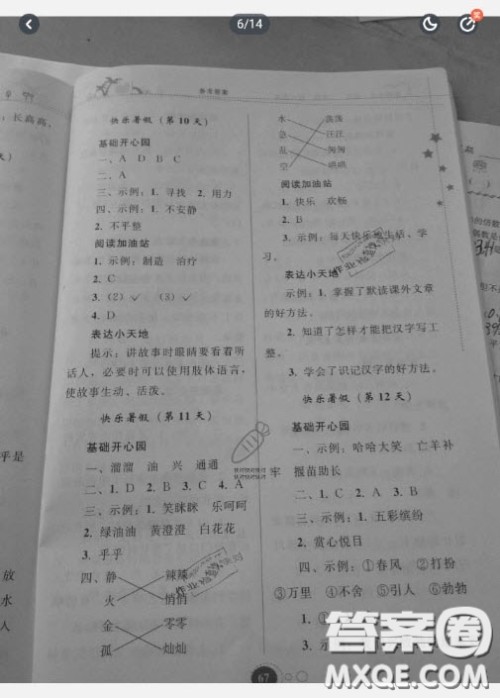 6/14
参考答案
长高高。
快乐暑假（第10天）
基础开心园
一、A D B C
二、A
三、示例：1. 寻找 2. 用力
四、示例：1. 不安静
2. 不平整
阅读加油站
1. 示例：制造 治疗
2. C
3. （2）✓ （3）✓
4. D
表达小天地
提示：讲故事时眼睛要看着听
话人，必要时可以使用肢体语言，
使故事生动、活泼。
快乐暑假（第11天）
基础开心园
一、溜溜 油 兴 通通
二、1. D 2. B 3. C 4. A
三、示例：1. 笑眯眯 乐呵呵
2. 绿油油 黄澄澄 白花花
3. 平平
四、静 辣辣
火 悄悄
金 零零
孤 灿灿
水
急
乱
空
汪汪
匆匆
阅读加油站
1. 快乐 欢畅
2. B
3. 示例：每天快乐地生活，学
习。
表达小天地
示例：1. 掌握了默读课外文章
的好方法。
2. 知道了怎样才能把汉字写工
整。
3. 学会了识记汉字的好方法。
快乐暑假（第12天）
基础开心园
一、示例：哈哈大笑 亡羊补
牢 揠苗助长
二、1. C 2. A 3. B
三、示例：1. 五彩缤纷
2. 赏心悦目
四、示例：①春风 ②打扮
③万里 ④不舍 ⑤引人 ⑥勃勃
1. ①
3. 示
67
平是
放
水
人
答案圈
MXQE.COM